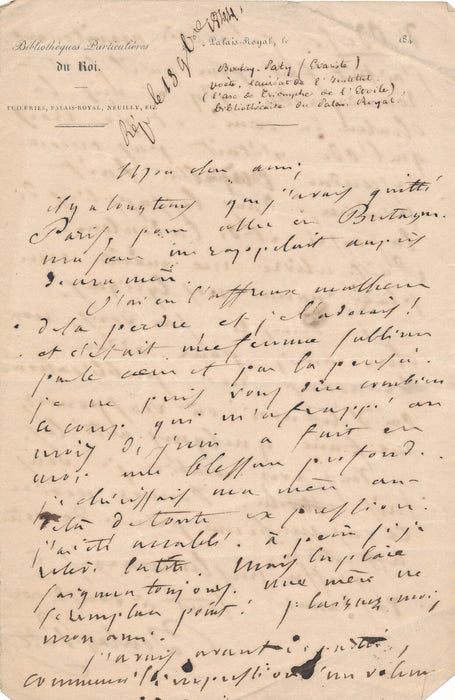 Bibliothèques Particulières
du Roi.
TUILERIES, PALAIS-ROYAL, NEUILLY, EU
Palais-Royal, le 184
Rép. le 13 9bre 1844.
Boulay-Paty (Evariste)
poète, lauréat de l'Institut
(l'arc de Triomphe de l'Etoile)
bibliothécaire du Palais Royal.
Mon cher ami,
il y a longtems que j'avais quitté
Paris, pour aller en Bretagne.
ma sœur me rappelait auprès
de ma mère.
J'ai eu l'affreux malheur
de la perdre et je l'adorais!
et c'était une femme sublime
par le cœur et par la pensée.
je ne puis vous dire combien
ce coup qui m'a frappé au
mois de juin a fait en
moi une blessure profonde.
je chérissais ma mère au-
delà de toute expression.
j'ai été accablé. à peine si je
relève la tête. Mais la plaie
saignera toujours. une mère ne
se remplace point! plaignez-moi,
mon ami.
j'avais avant
commencé l'impression d'un volume